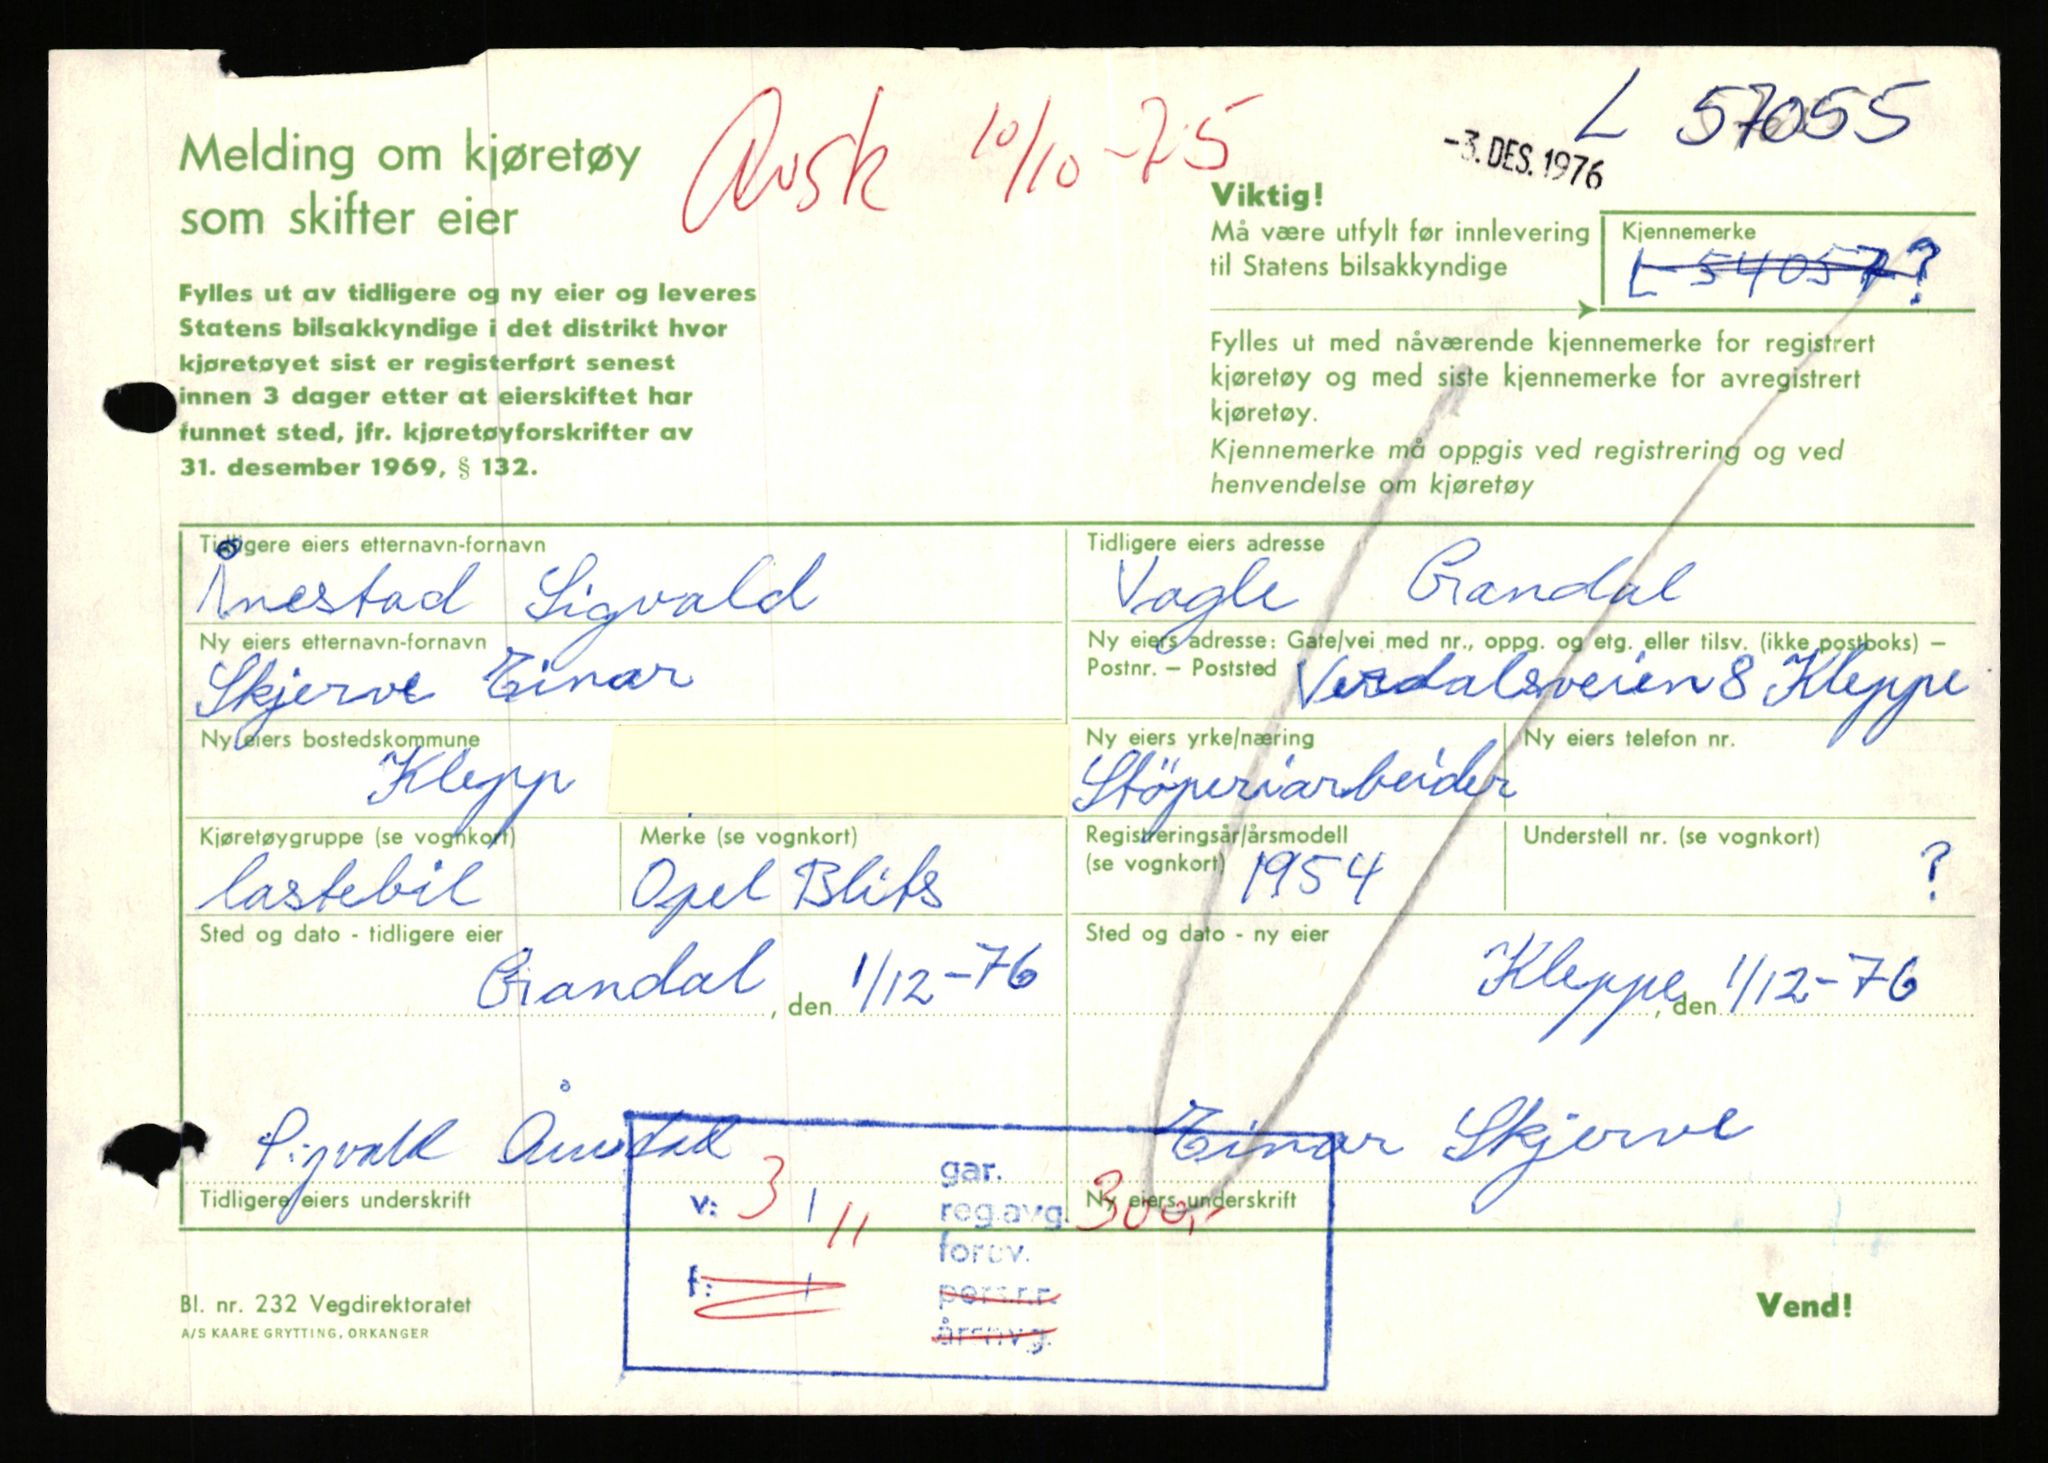 L 57055
Avsk 10/10-75
-3. DES. 1976
Melding om kjøretøy
som skifter eier
Fylles ut av tidligere og ny eier og leveres
Statens bilsakkyndige i det distrikt hvor
kjøretøyet sist er registerført senest
innen 3 dager etter at eierskiftet har
funnet sted, jfr. kjøretøyforskrifter av
31. desember 1969, § 132.
Viktig!
Må være utfylt før innlevering
til Statens bilsakkyndige
Kjennemerke
L-54057?
Fylles ut med nåværende kjennemerke for registrert
kjøretøy og med siste kjennemerke for avregistrert
kjøretøy.
Kjennemerke må oppgis ved registrering og ved
henvendelse om kjøretøy
Tidligere eiers etternavn-fornavn
Ånestad Sigvald
Tidligere eiers adresse
Vagle Gandal
Ny eiers etternavn-fornavn
Skjerve Einar
Ny eiers adresse: Gate/vei med nr., oppg. og etg. eller tilsv. (ikke postboks) –
Postnr. – Poststed Verdalsveien 8 Kleppe
Ny eiers bostedskommune
Klepp
Ny eiers yrke/næring
Støperiarbeider
Ny eiers telefon nr.
Kjøretøygruppe (se vognkort)
lastebil
Merke (se vognkort)
Opel Blits
Registreringsår/årsmodell
(se vognkort) 1954
Understell nr. (se vognkort)
?
Sted og dato - tidligere eier
Gandal, den 1/12-76
Sted og dato - ny eier
Kleppe, den 1/12-76
Sigvald Ånestad
Tidligere eiers underskrift
Einar Skjerve
Ny eiers underskrift
v: 3/11
f: /
gar.
reg.avg. 300,-
forsv.
pers.nr.
årsavg.
Bl. nr. 232 Vegdirektoratet
A/S KAARE GRYTTING, ORKANGER
Vend!